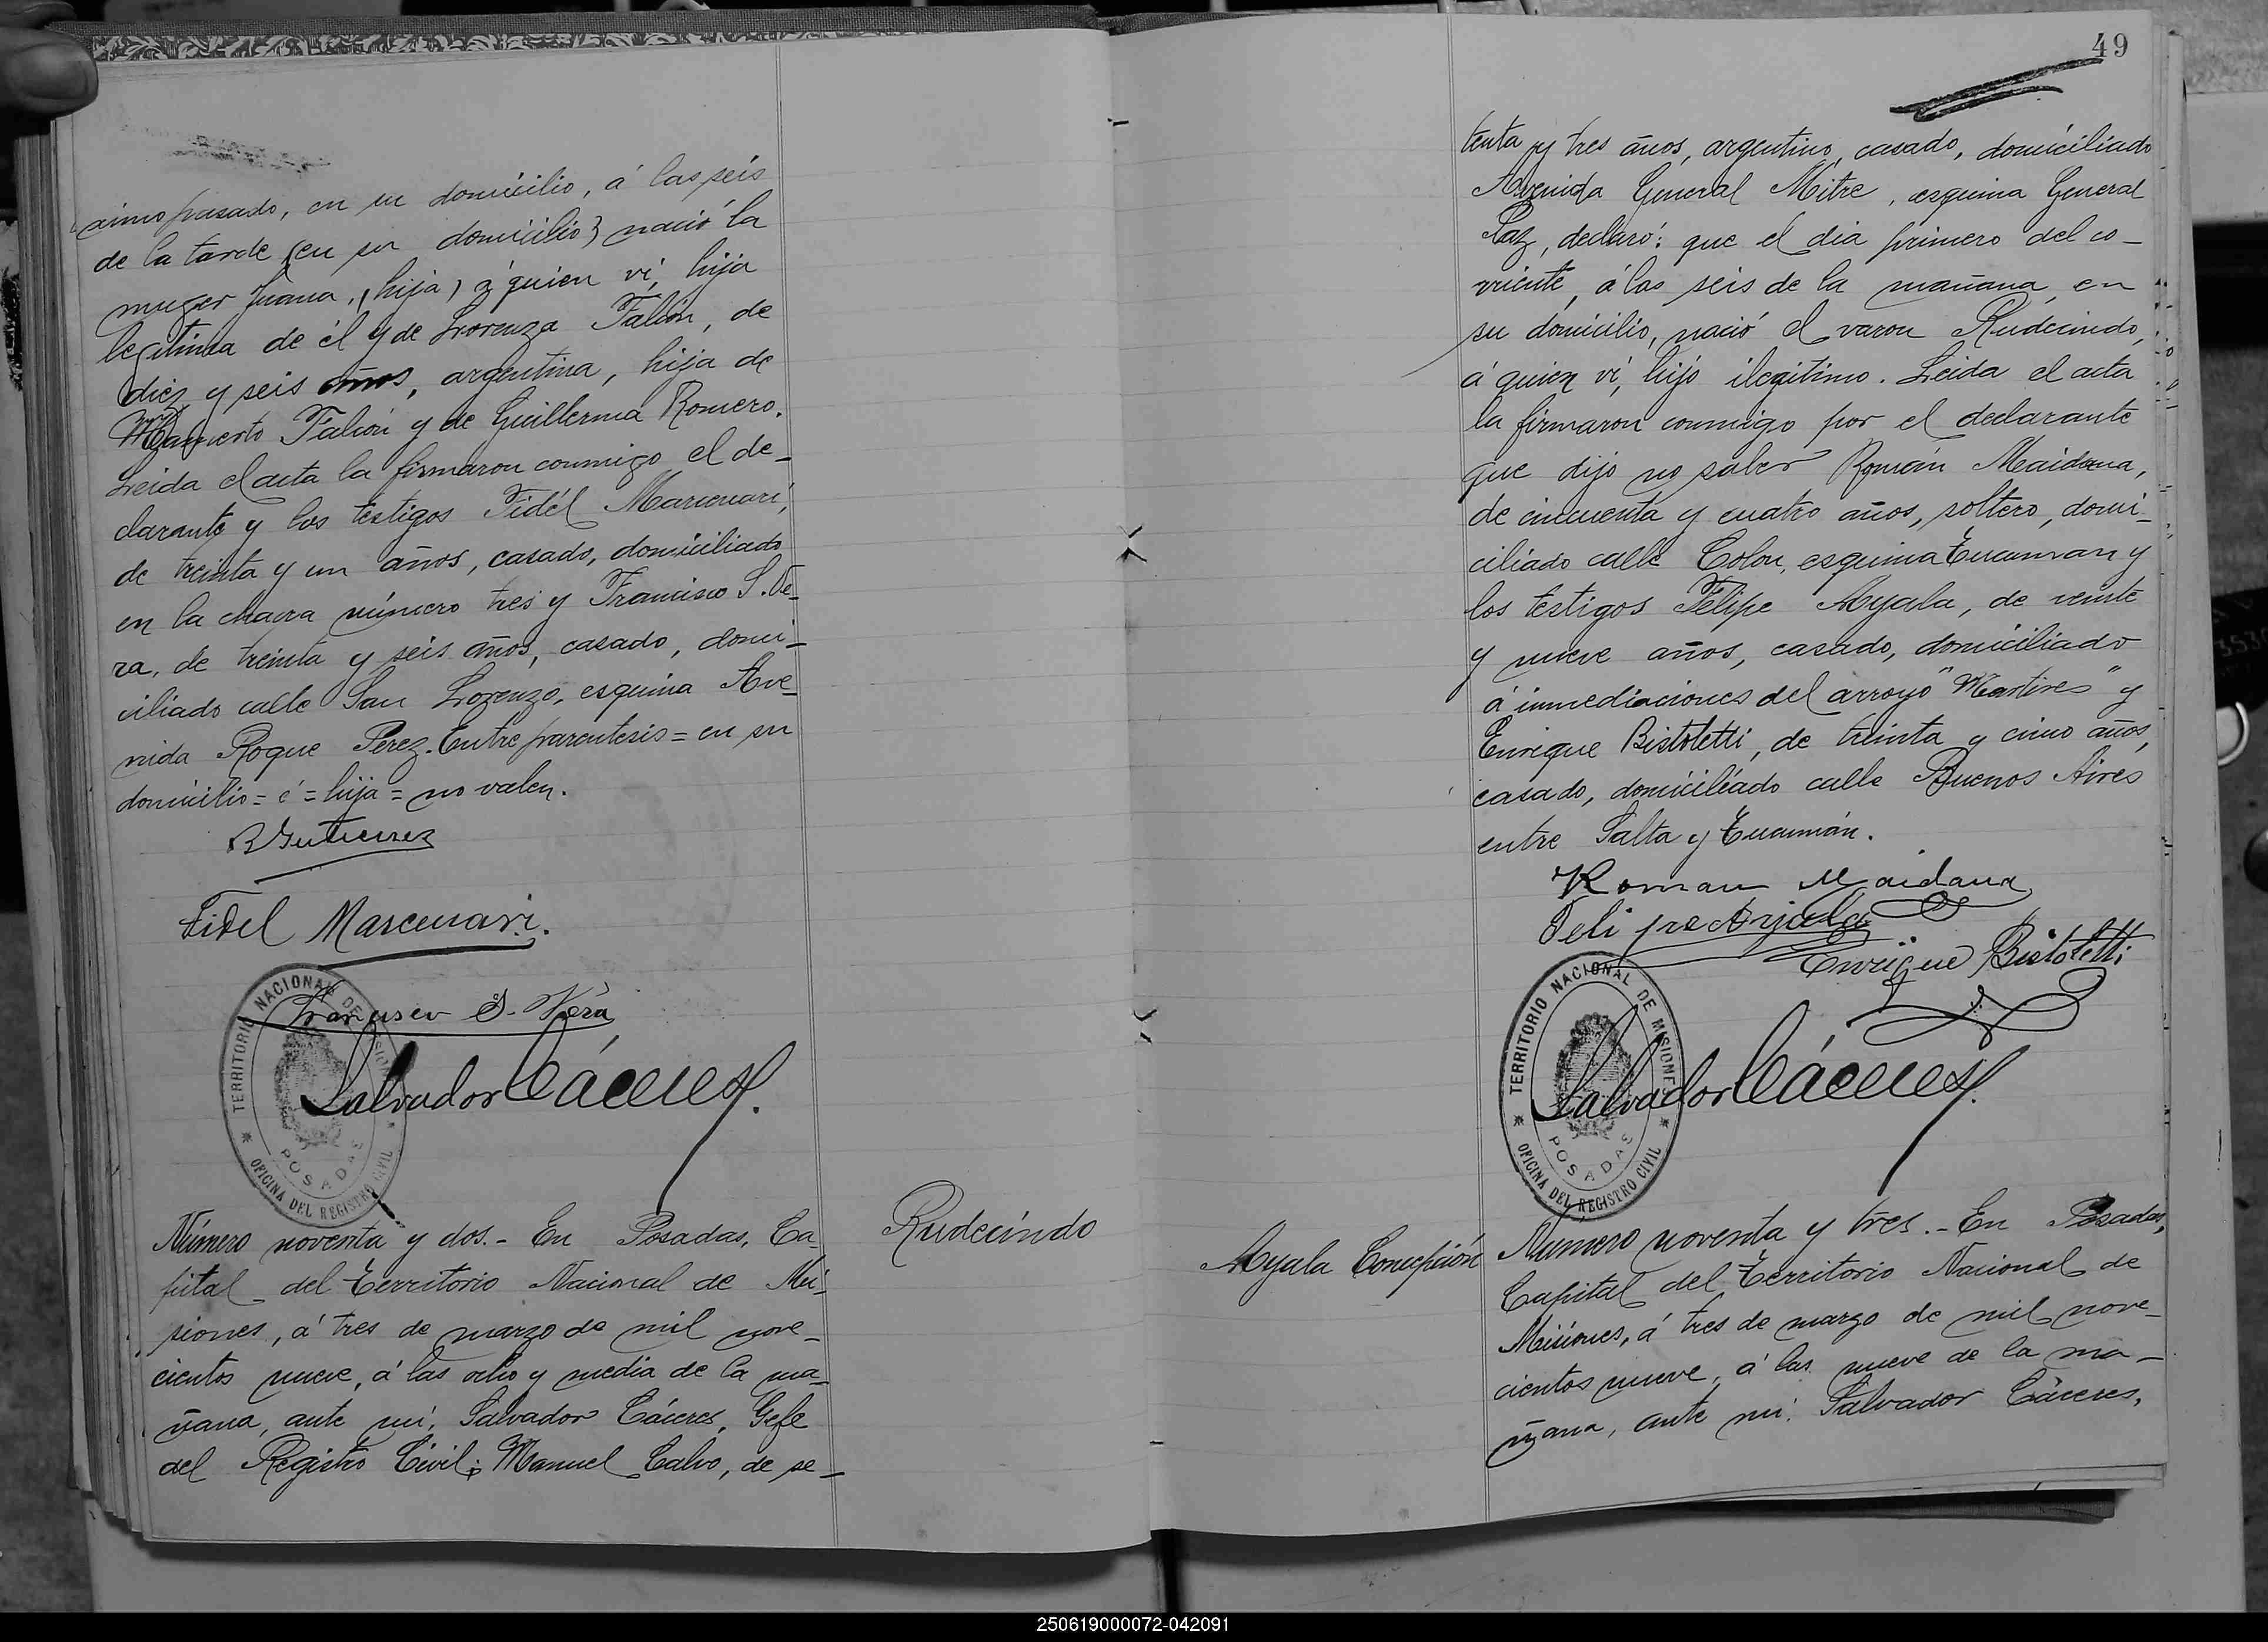 ximo pasado, en su domicilio, á las seis
de la tarde (en su domicilio) nació la
muger Juana, (hija) á quien ví, hija
legitima de él y de Lorenza Falcón, de
diez y seis años, argentina, hija de
Mamerto Falcón y de Guillerma Romero.
Leida el acta la firmaron conmigo el de-
clarante y los testigos Fidél Marcenari,
de treinta y un años, casado, domiciliado
en la chacra número tres y Francisco S. Ve-
ra, de treinta y seis años, casado, domi-
ciliado calle San Lorenzo, esquina Ave-
nida Roque Perez. Entre parentesis = en su
domicilio = é = hija = no valen.
R Gutierrez
Fidel Marcenari.
Francisco S. Vera
Salvador Cáceres
TERRITORIO NACIONAL DE MISIONES
POSADAS
OFICINA DEL REGISTRO CIVIL
Rudecindo
Número noventa y dos.- En Posadas, Ca-
pital del Territorio Nacional de Mi-
siones, á tres de marzo de mil nove-
cientos nueve, á las ocho y media de la ma-
ñana, ante mí, Salvador Cáceres, Gefe
del Registro Civil; Manuel Calvo, de se-
49
tenta y tres años, argentino, casado, domiciliado
Avenida General Mitre, esquina General
Paz, declaró: que el dia primero del co-
rriente, á las seis de la mañana, en
su domicilio, nació el varon Rudecindo,
á quien ví, hijo ilegitimo. Leida el acta
la firmaron conmigo por el declarante
que dijo no saber Román Maidana,
de cincuenta y cuatro años, soltero, domi-
ciliado calle Colon, esquina Tucuman y
los testigos Felipe Ayala, de veinte
y nueve años, casado, domiciliado
á inmediaciones del arroyo "Martires" y
Enrique Bistoletti, de treinta y cinco años,
casado, domiciliado calle Buenos Aires
entre Salta y Tucumán.
Roman Maidana
Felipe Ayala
Enrique Bistoletti
Salvador Cáceres
TERRITORIO NACIONAL DE MISIONES
POSADAS
OFICINA DEL REGISTRO CIVIL
Ayala Concepción
Número noventa y tres.- En Posadas,
Capital del Territorio Nacional de
Misiones, á tres de marzo de mil nove-
cientos nueve, á las nueve de la ma-
ñana, ante mí, Salvador Cáceres,
250619000072-042091